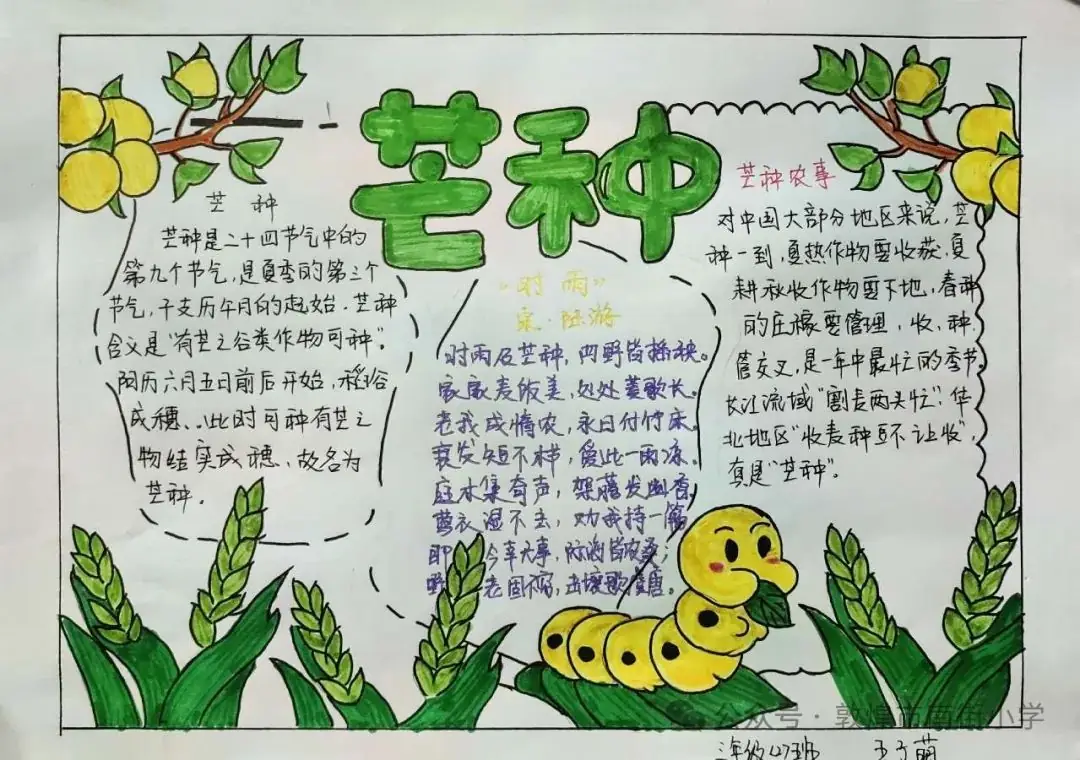 芒种
芒 种
芒种是二十四节气中的
第九个节气,是夏季的第三个
节气,干支历午月的起始.芒种
含义是"有芒之谷类作物可种"。
阳历六月五日前后开始,稻谷
成穗、.此时可种有芒之
物结实成穗、故名为
芒种.
"时雨"
宋·陆游
时雨及芒种,四野皆插秧。
家家麦饭美,处处菱歌长。
老我成惰农,永日付竹床。
衰发短不栉,爱此一雨凉。
庭木集奇声,架藤发幽香。
莺衣湿不去,劝我持一觞
即 今幸无事,际海皆农桑;
野 老固不穷,击壤歌虞唐。
芒种农事
对中国大部分地区来说,芒
种一到,夏热作物要收获.夏
耕秋收作物要下地,春种
的庄稼要管理,收、种、
管交叉,是一年中最忙的季节
长江流域"割麦两头忙";华
北地区"收麦种豆不让晌",
真是"芒种"。
公众号·敦煌市南街小学
三年级(2)班